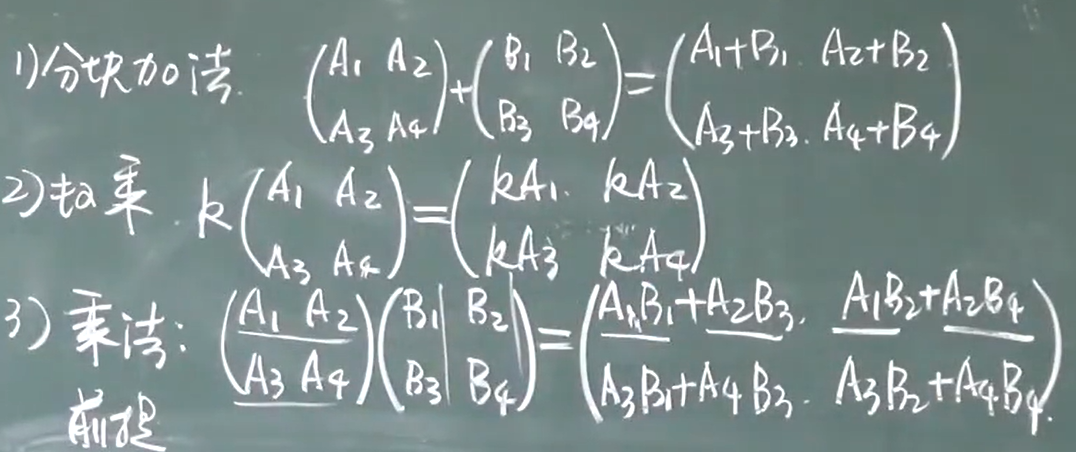 1)分块加法. (A₁ A₂ / A₃ A₄) + (B₁ B₂ / B₃ B₄) = (A₁+B₁. A₂+B₂ / A₃+B₃. A₄+B₄)
2)数乘. k(A₁ A₂ / A₃ A₄) = (kA₁. kA₂ / kA₃ kA₄)
3)乘法: (A₁ A₂ / A₃ A₄)(B₁ B₂ / B₃ B₄) = (A₁B₁+A₂B₃. A₁B₂+A₂B₄ / A₃B₁+A₄B₃. A₃B₂+A₄B₄.)
前提